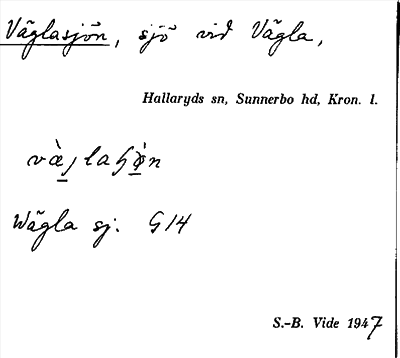 Väglasjön, sjö vid Vägla,
Hallaryds sn, Sunnerbo hd, Kron. l.
Wägla sj. G 14
S.-B. Vide 1947